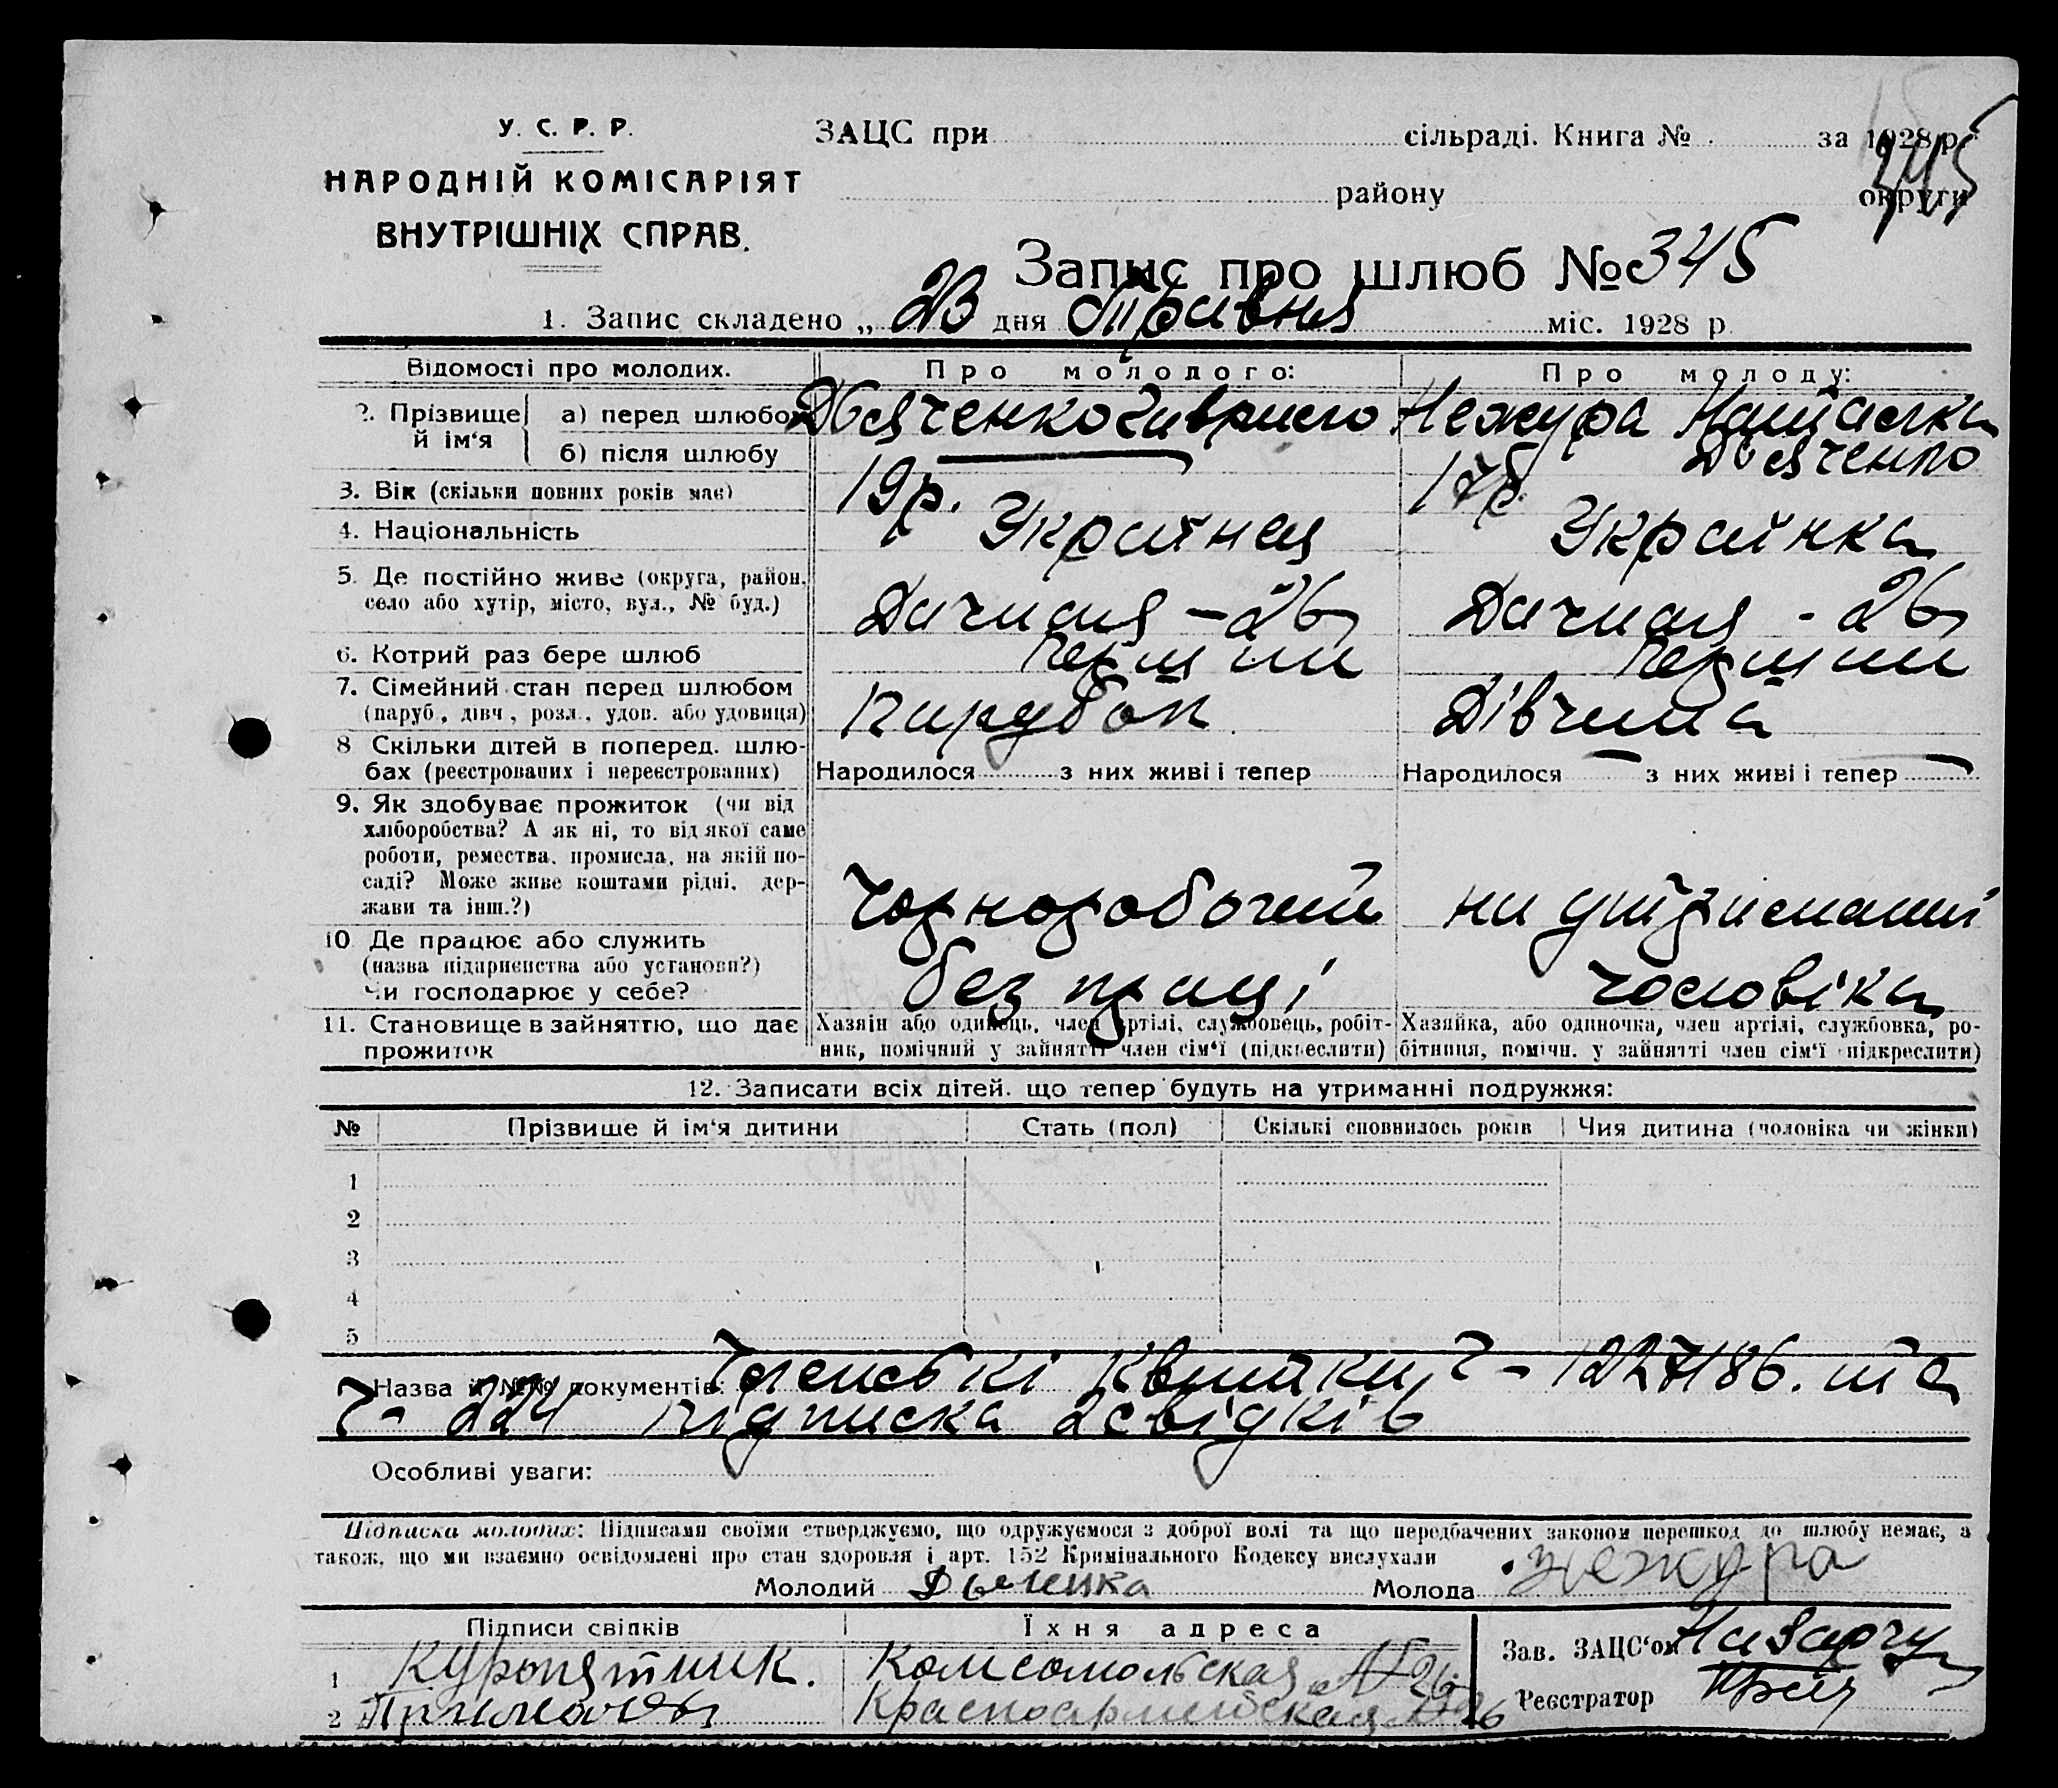 У. С. Р. Р.
НАРОДНІЙ КОМІСАРІЯТ
ВНУТРІШНІХ СПРАВ.
ЗАЦС при сільраді. Книга № за 1928 р.
району округи
345
Запис про шлюб № 345
1. Запис складено „ 23 дня Травня міс. 1928 р.
Відомості про молодих. Про молодого: Про молоду:
2. Прізвище й ім‘я а) перед шлюбом Дьяченко Гаврило Нежура Наталка
б) після шлюбу Дьяченко
3. Вік (скільки повних років має) 19р. 17р.
4. Національність Українец Українка
5. Де постійно живе (округа, район, село або хутір, місто, вул., № буд.) Дачная – 26 Дачная - 26
6. Котрий раз бере шлюб перший перший
7. Сімейний стан перед шлюбом (паруб., дівч., розл., удов. або удовиця) парубок Дівчина
8 Скільки дітей в поперед. шлюбах (реєстрованих і нереєстрованих) Народилося з них живі і тепер Народилося — з них живі і тепер —
9. Як здобуває прожиток (чи від хліборобства? А як ні, то від якої саме роботи, ремества, промисла, на якій посаді? Може живе коштами рідні, держави та інш.?) Чорноробочий на утриманні
10 Де працює або служить (назва підприємства або установи?) Чи господарює у себе? без праці чоловіка
11. Становище в зайняттю, що дає прожиток Хазяін або одинець, член артілі, службовець, робітник, помічний у зайнятті член сім‘ї (підкреслити) Хазяйка, або одиночка, член артілі, службовка, робітниця, помічн. у зайнятті член сім‘ї (підкреслити)
12. Записати всіх дітей, що тепер будуть на утриманні подружжя:
№ Прізвище й ім‘я дитини Стать (пол) Скількі сповнилось років Чия дитина (чоловіка чи жінки)
1
2
3
4
5
Назва й №№ документів: Членські Квитки Ч- 1227186. та
Ч- 224 підписка 2 свідків
Особливі уваги:
Підписка молодих: Підписами своїми стверджуємо, що одружуємося з доброї волі та що передбачених законом перешкод до шлюбу немає, а
також, що ми взаємно освідомлені про стан здоровля і арт. 152 Кримінального Кодексу вислухали
Молодий Молода Нежура
Підписи свідків Їхня адреса Зав. ЗАЦС‘ом
1 Куропятник. Комсомольская №26
2 Красноармейская №26 Реєстратор